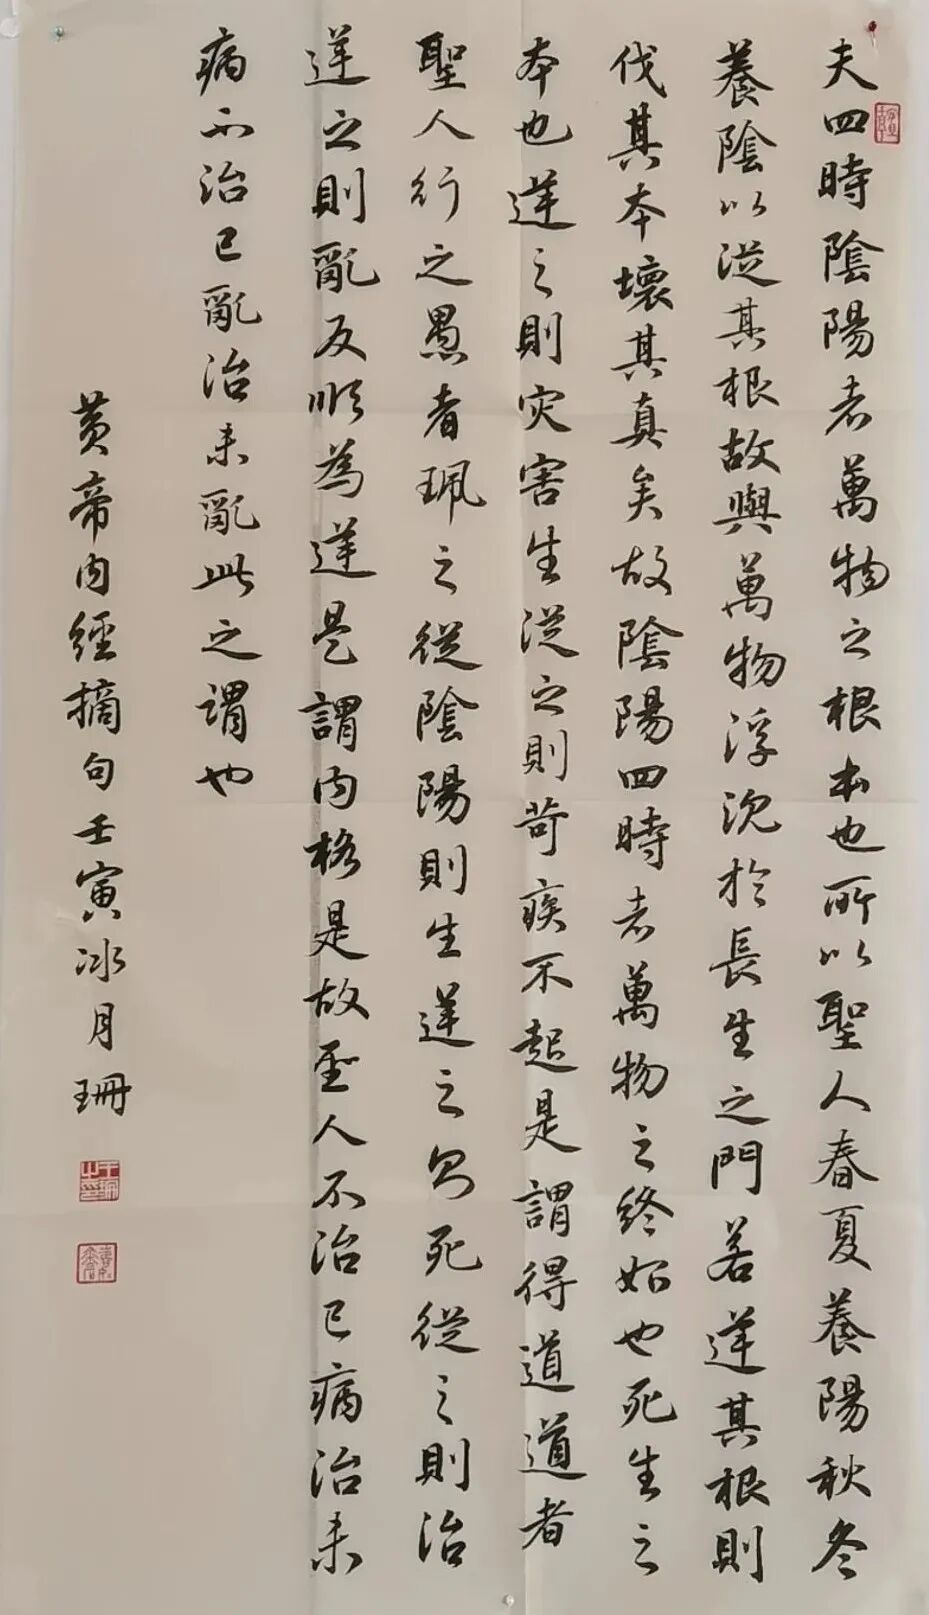 夫四時陰陽者萬物之根本也所以聖人春夏養陽秋冬
養陰以從其根故與萬物浮沉於長生之門若逆其根則
伐其本壞其真矣故陰陽四時者萬物之終始也死生之
本也逆之則灾害生從之則苛疾不起是謂得道道者
聖人行之愚者珮之從陰陽則生逆之則死從之則治
逆之則亂反順為逆是謂内格是故聖人不治已病治未
病不治已亂治未亂此之謂也
黃帝内經摘句壬寅冰月珊